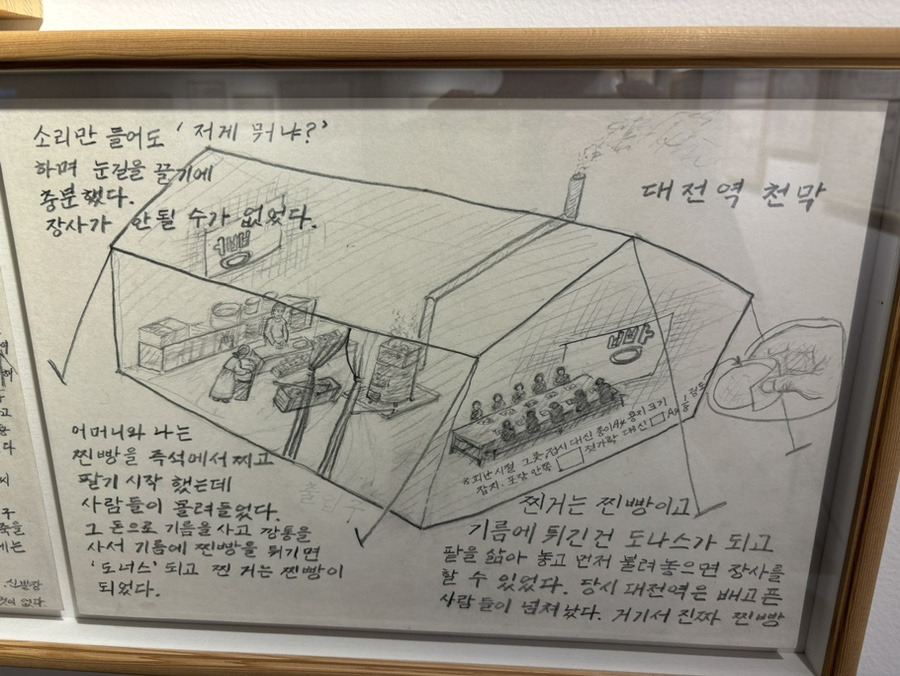 소리만 들어도 '저게 뭐냐?'
하며 눈길을 끌기에
충분했다.
장사가 안될 수가 없었다.
대전역 천막
찐빵
찐빵
어머니와 나는
찐빵을 즉석에서 찌고
팔기 시작 했는데
사람들이 몰려들었다.
그 돈으로 기름을 사고 깡통을
사서 기름에 찐빵을 튀기면
'도너스' 되고 찐 거는 찐빵이
되었다.
출입구
※피난시절 그릇,접시 대신 종이A4 용지 크기
잡지. 포장 안쪽 젓가락 대신
찐거는 찐빵이고
기름에 튀긴건 도나스가 되고
팥을 삶아 놓고 먼저 불려놓으면 장사를
할 수 있었다. 당시 대전역은 배고픈
사람들이 넘쳐났다. 거기서 진짜 찐빵